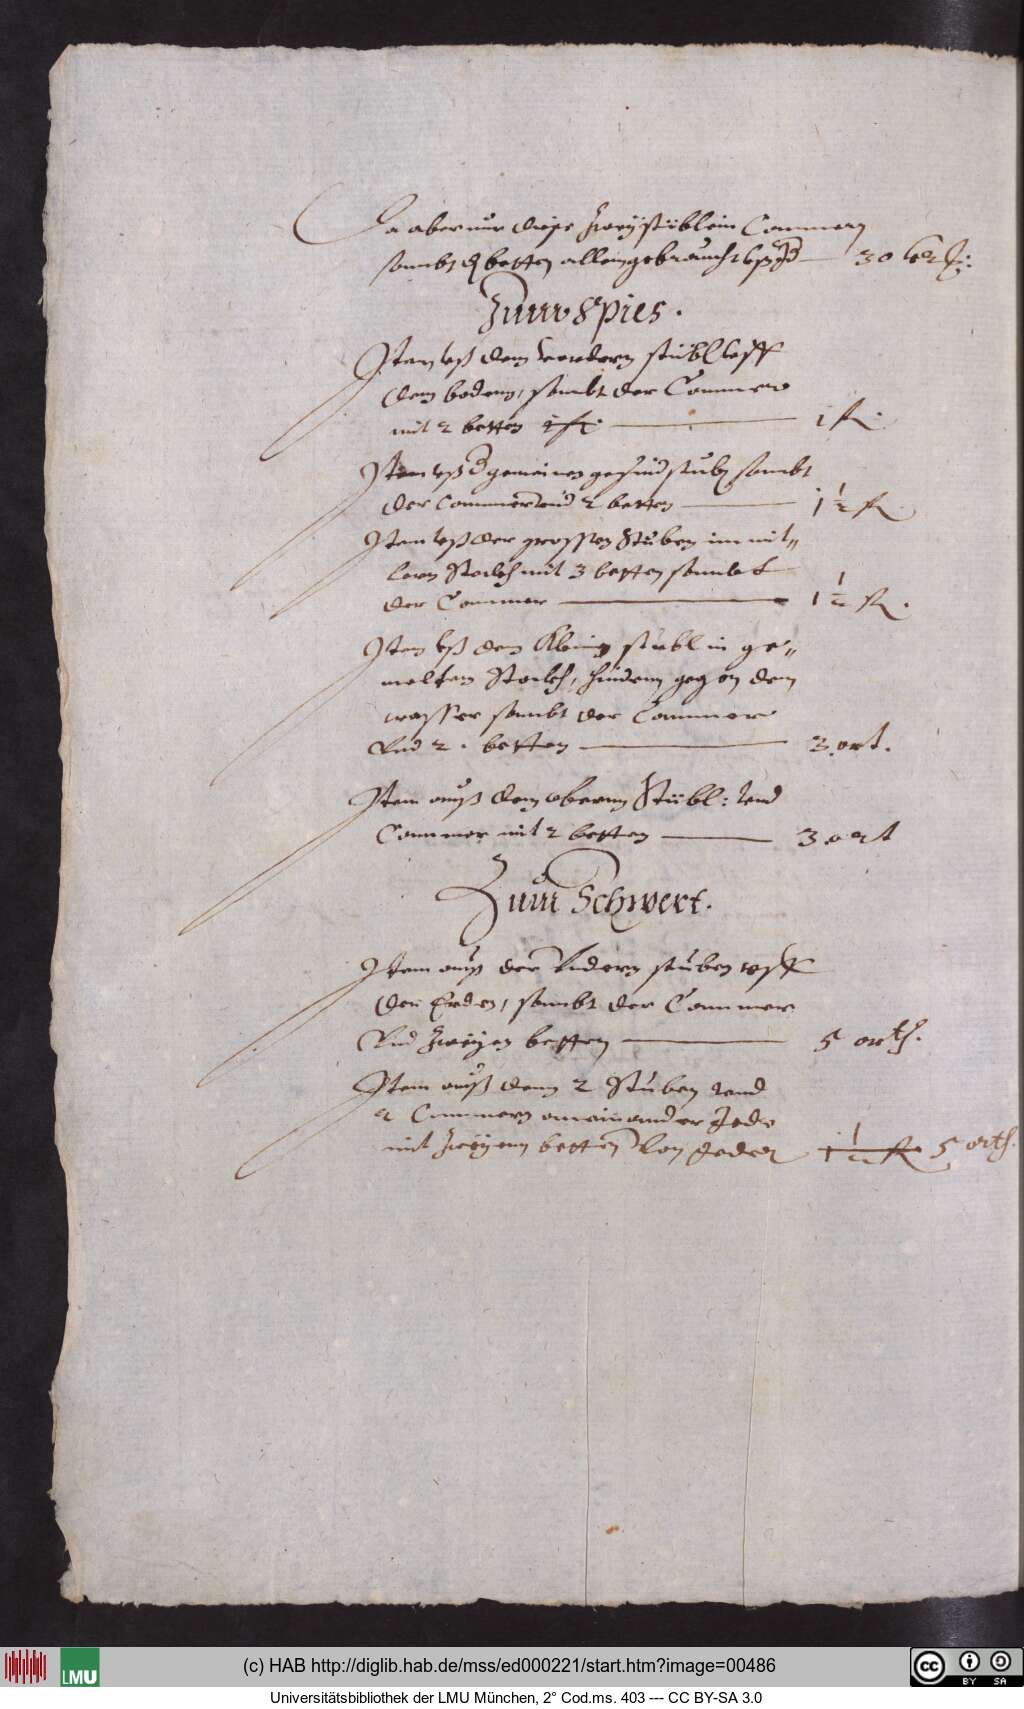 Da aber nur diese zweÿ stüblein Cammern
sambt den betten allein gebraucht 30
Zum Spies.
Item vß dem vordern stübl vff
dem boden, sambt der Cammer
mit 2 betten 1 fl. 1 fl.
Item vß d gemeinen gesindstub sambt
der Cammer vnd 2 betten 1 1/2 fl.
Item vß der grossen Stuben im mit„
lern Stockh mit 3 betten sambt
der Cammer 1 1/2 fl.
Item vß dem kleinen stübl in ge„
melten Stockh, hinden gegen dem
wasser sambt der Cammer
Vnd 2. betten 3 ort.
Item auß dem obernn Stübl: vnd
Cammer mit 2 betten 3 ort
Zum Schwert.
Item auß der Vndern stuben vff
der Erden, sambt der Cammer
Vnd zweÿen betten 5 orth.
Item auß denn 2 Stuben vnd
2 Cammern aneinander Jede
mit zweÿenn betten von Jeder 1 1/2 fl 5 orth.
(c) HAB http://diglib.hab.de/mss/ed000221/start.htm?image=00486
LMU
cc BY SA
Universitätsbibliothek der LMU München, 2° Cod.ms. 403 --- CC BY-SA 3.0